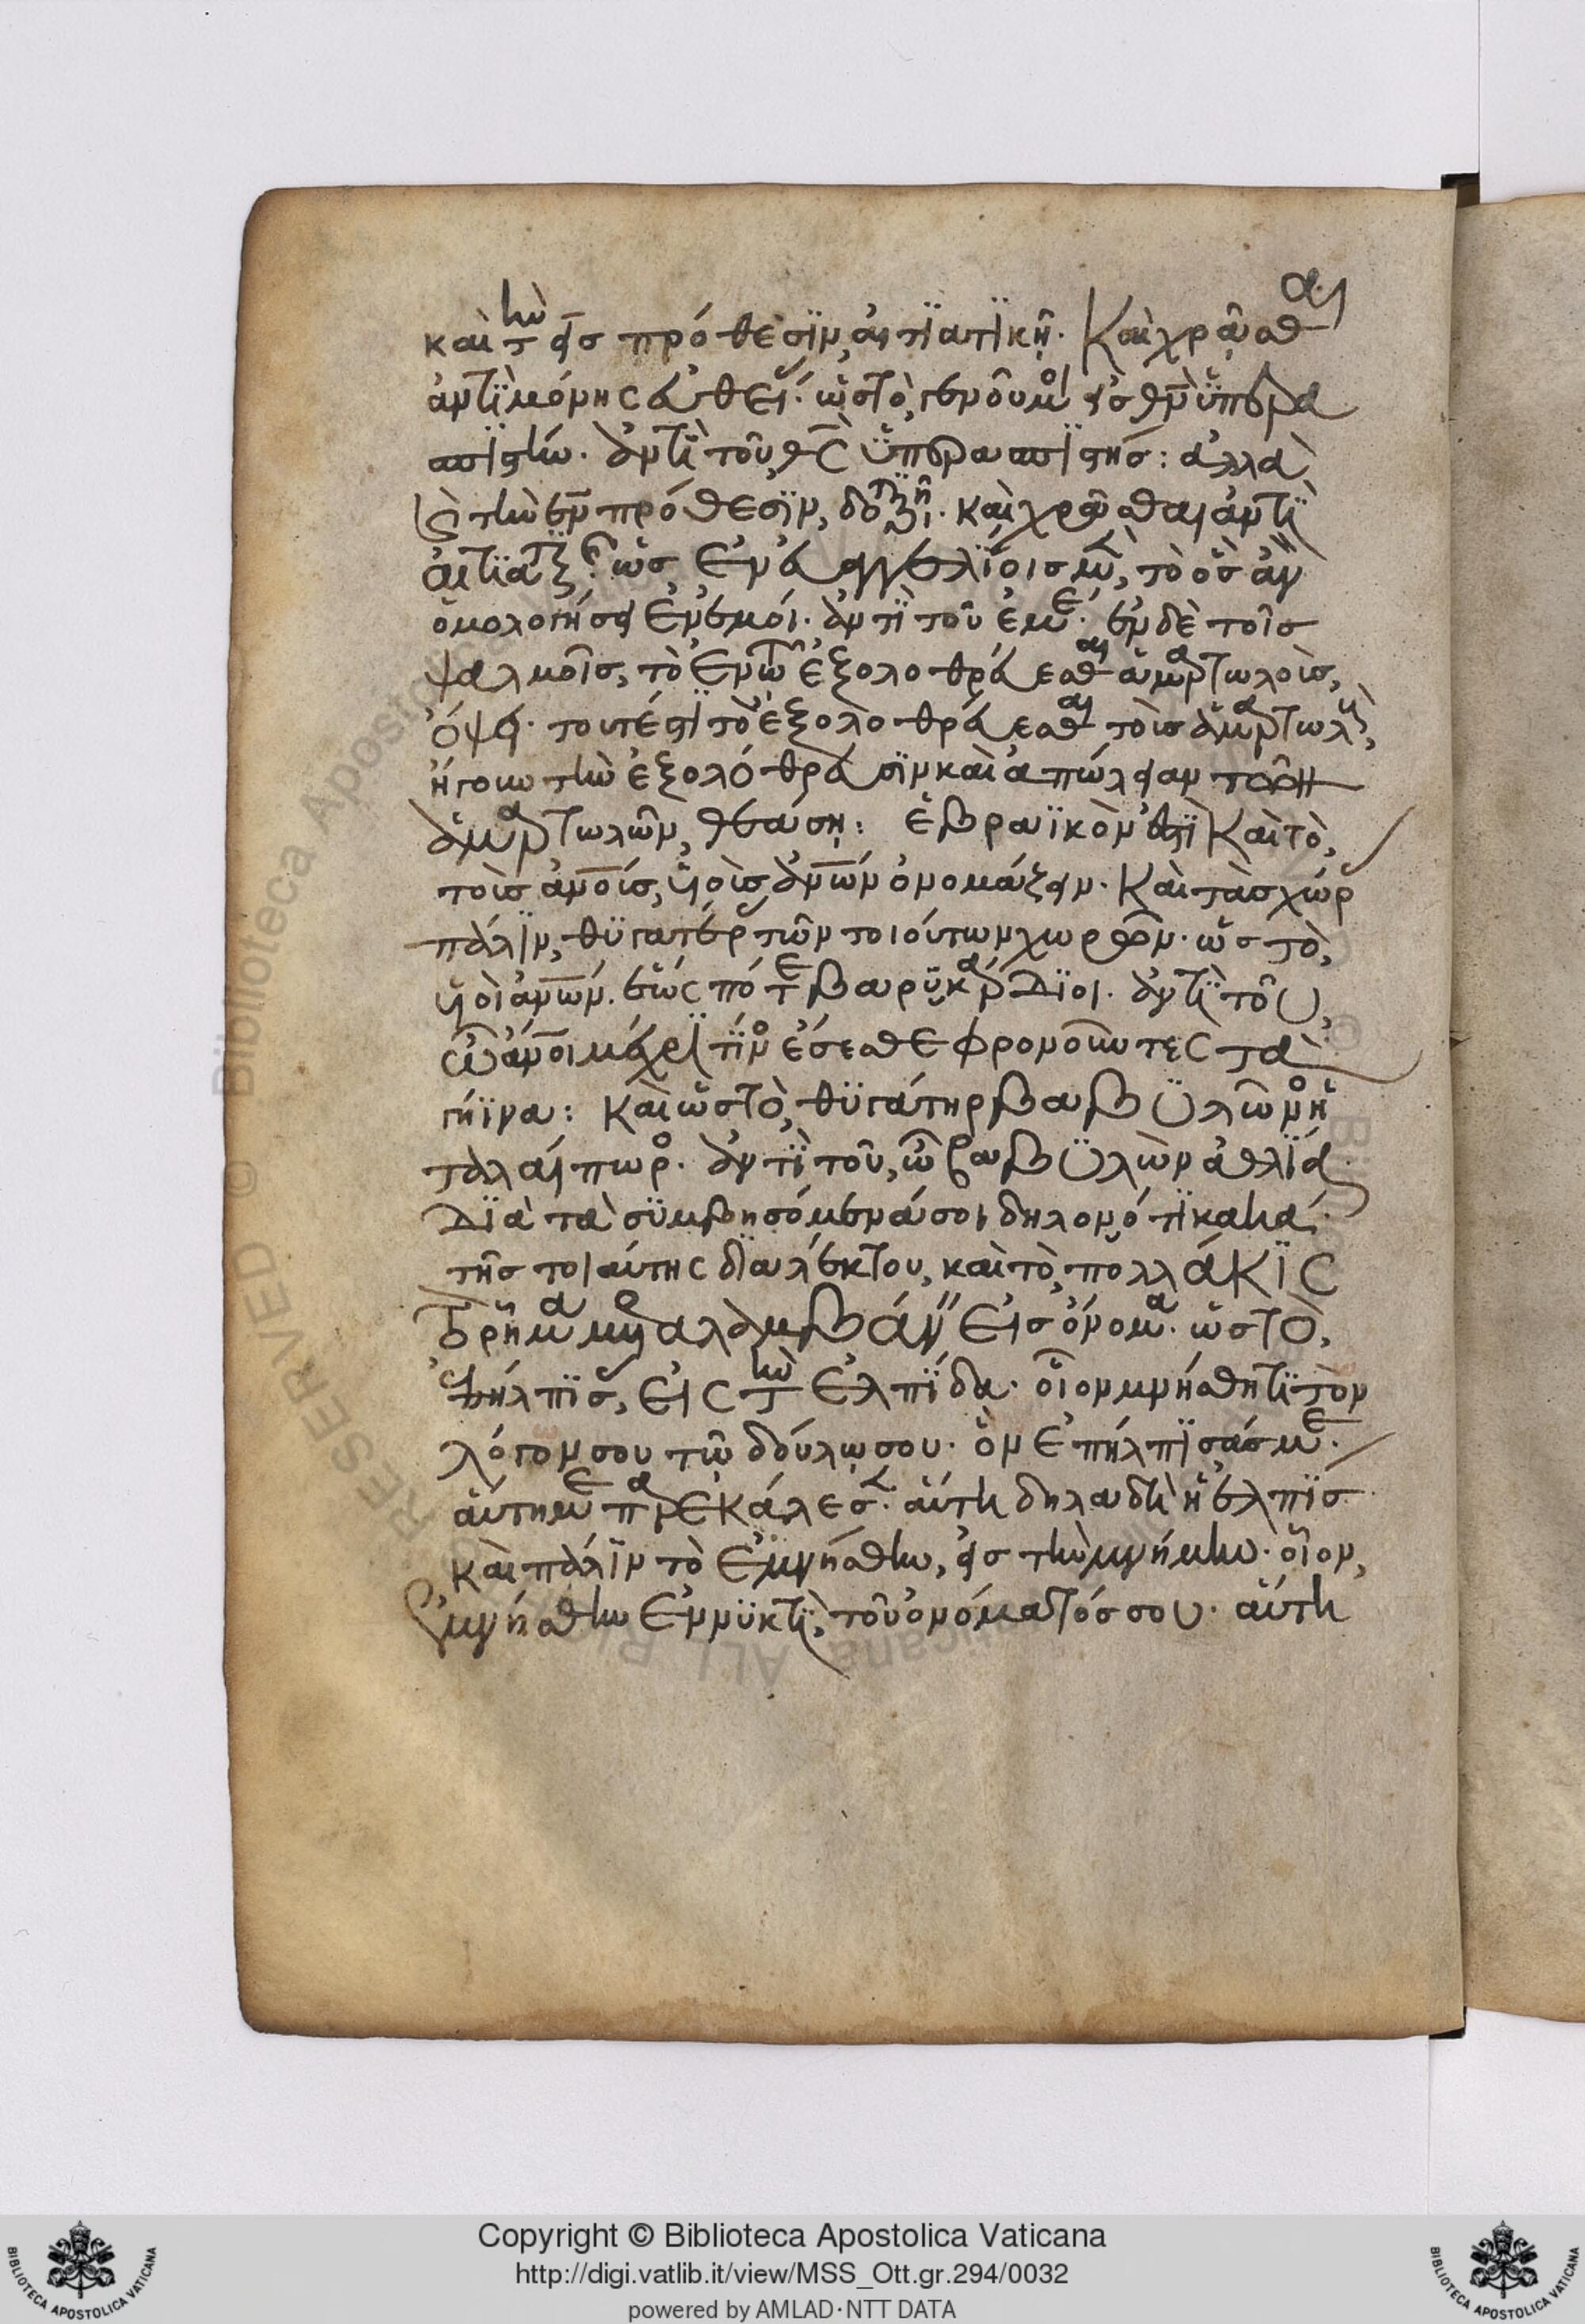 καὶ τὴν εἰς πρόθεσιν, αἰτιατικῇ. Καὶ χρᾶσθαι
ἀντὶ μόνης εὐθείας. ὡς τὸ, γενοῦ μοι εἰς θν ὑπερα
σπιστήν. ἀντὶ τοῦ θς ὑπερασπιστής: ἀλλὰ
καὶ τὴν ἐν πρόθεσιν, δοτικῇ. καὶ χρᾶσθαι ἀντὶ
αἰτιατικῆς. ὡς ἐν εὐαγγελίοις μὲν, τὸ ὃς ἂν
ὁμολογήσει ἐν ἐμοί. ἀντὶ τοῦ ἐμέ. ἐν δὲ τοῖς
ψαλμοῖς, τὸ ἐν τῷ ἐξολοθρεύεσθαι ἁμαρτωλοὺς,
ὄψει. τουτέστι τὸ ἐξολοθρεύεσθαι τοὺς ἁμαρτωλοὺς,
ἤγουν τὴν ἐξολόθρευσιν καὶ ἀπώλειαν τῶν
ἁμαρτωλῶν, θεάσῃ: ἑβραϊκὸν ἐστὶ καὶ τὸ,
τοὺς ἀνους, υἱοὺς ἀνων ὀνομάζειν. Καὶ τὰς χώρας
πάλιν, θυγατέρας τῶν τοιούτων χωρῶν. ὡς τὸ,
υἱοὶ ἀνων. ἕως πότε βαρυκάρδιοι. ἀντὶ τοῦ,
ὦ ἀνοι μέχρι τίνος ἔσεσθε φρονοῦντες τὰ
γήινα: καὶ ὡς τὸ, θυγάτηρ βαβυλῶνος ἡ
ταλαίπωρος. ἀντὶ τοῦ, ὦ βαβυλὼν ἀθλία
διὰ τὰ συμβησόμενά σοι δηλονότι κακά.
τῆς τοιαύτης διαλέκτου, καὶ τὸ, πολλάκις
ῥῆμα μεταλαμβάνειν εἰς ὄνομα. ὡς τὸ,
ἐπήλπισας, εἰς τὴν ἐλπίδα. οἷον μνήσθητι τὸν
λόγον σου τῷ δούλῳ σου. ὃν ἐπήλπισάς με.
αὕτη με παρεκάλεσεν. αὕτη δηλαδὴ ἡ ἐλπίς
καὶ πάλιν τὸ ἐμνήσθην, εἰς τὴν μνήμην. οἷον,
ἐμνήσθην ἐν νυκτὶ, τοῦ ὀνόματός σου. αὕτη
Copyright © Biblioteca Apostolica Vaticana
http://digi.vatlib.it/view/MSS_Ott.gr.294/0032
powered by AMLAD·NTT DATA